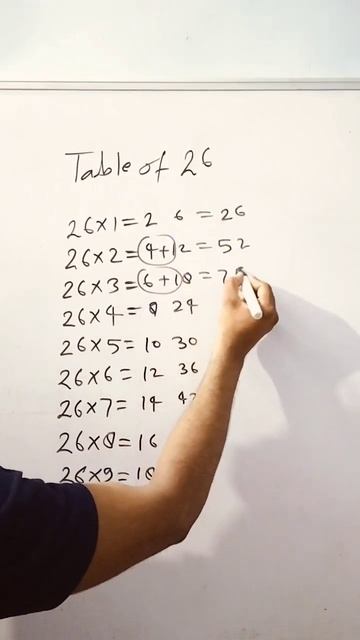 Table of 26
26×1=2 6 =26
26×2=4+12=52
26×3=6+18=7
26×4=8 24
26×5=10 30
26×6=12 36
26×7=14 42
26×8=16
26×9=18